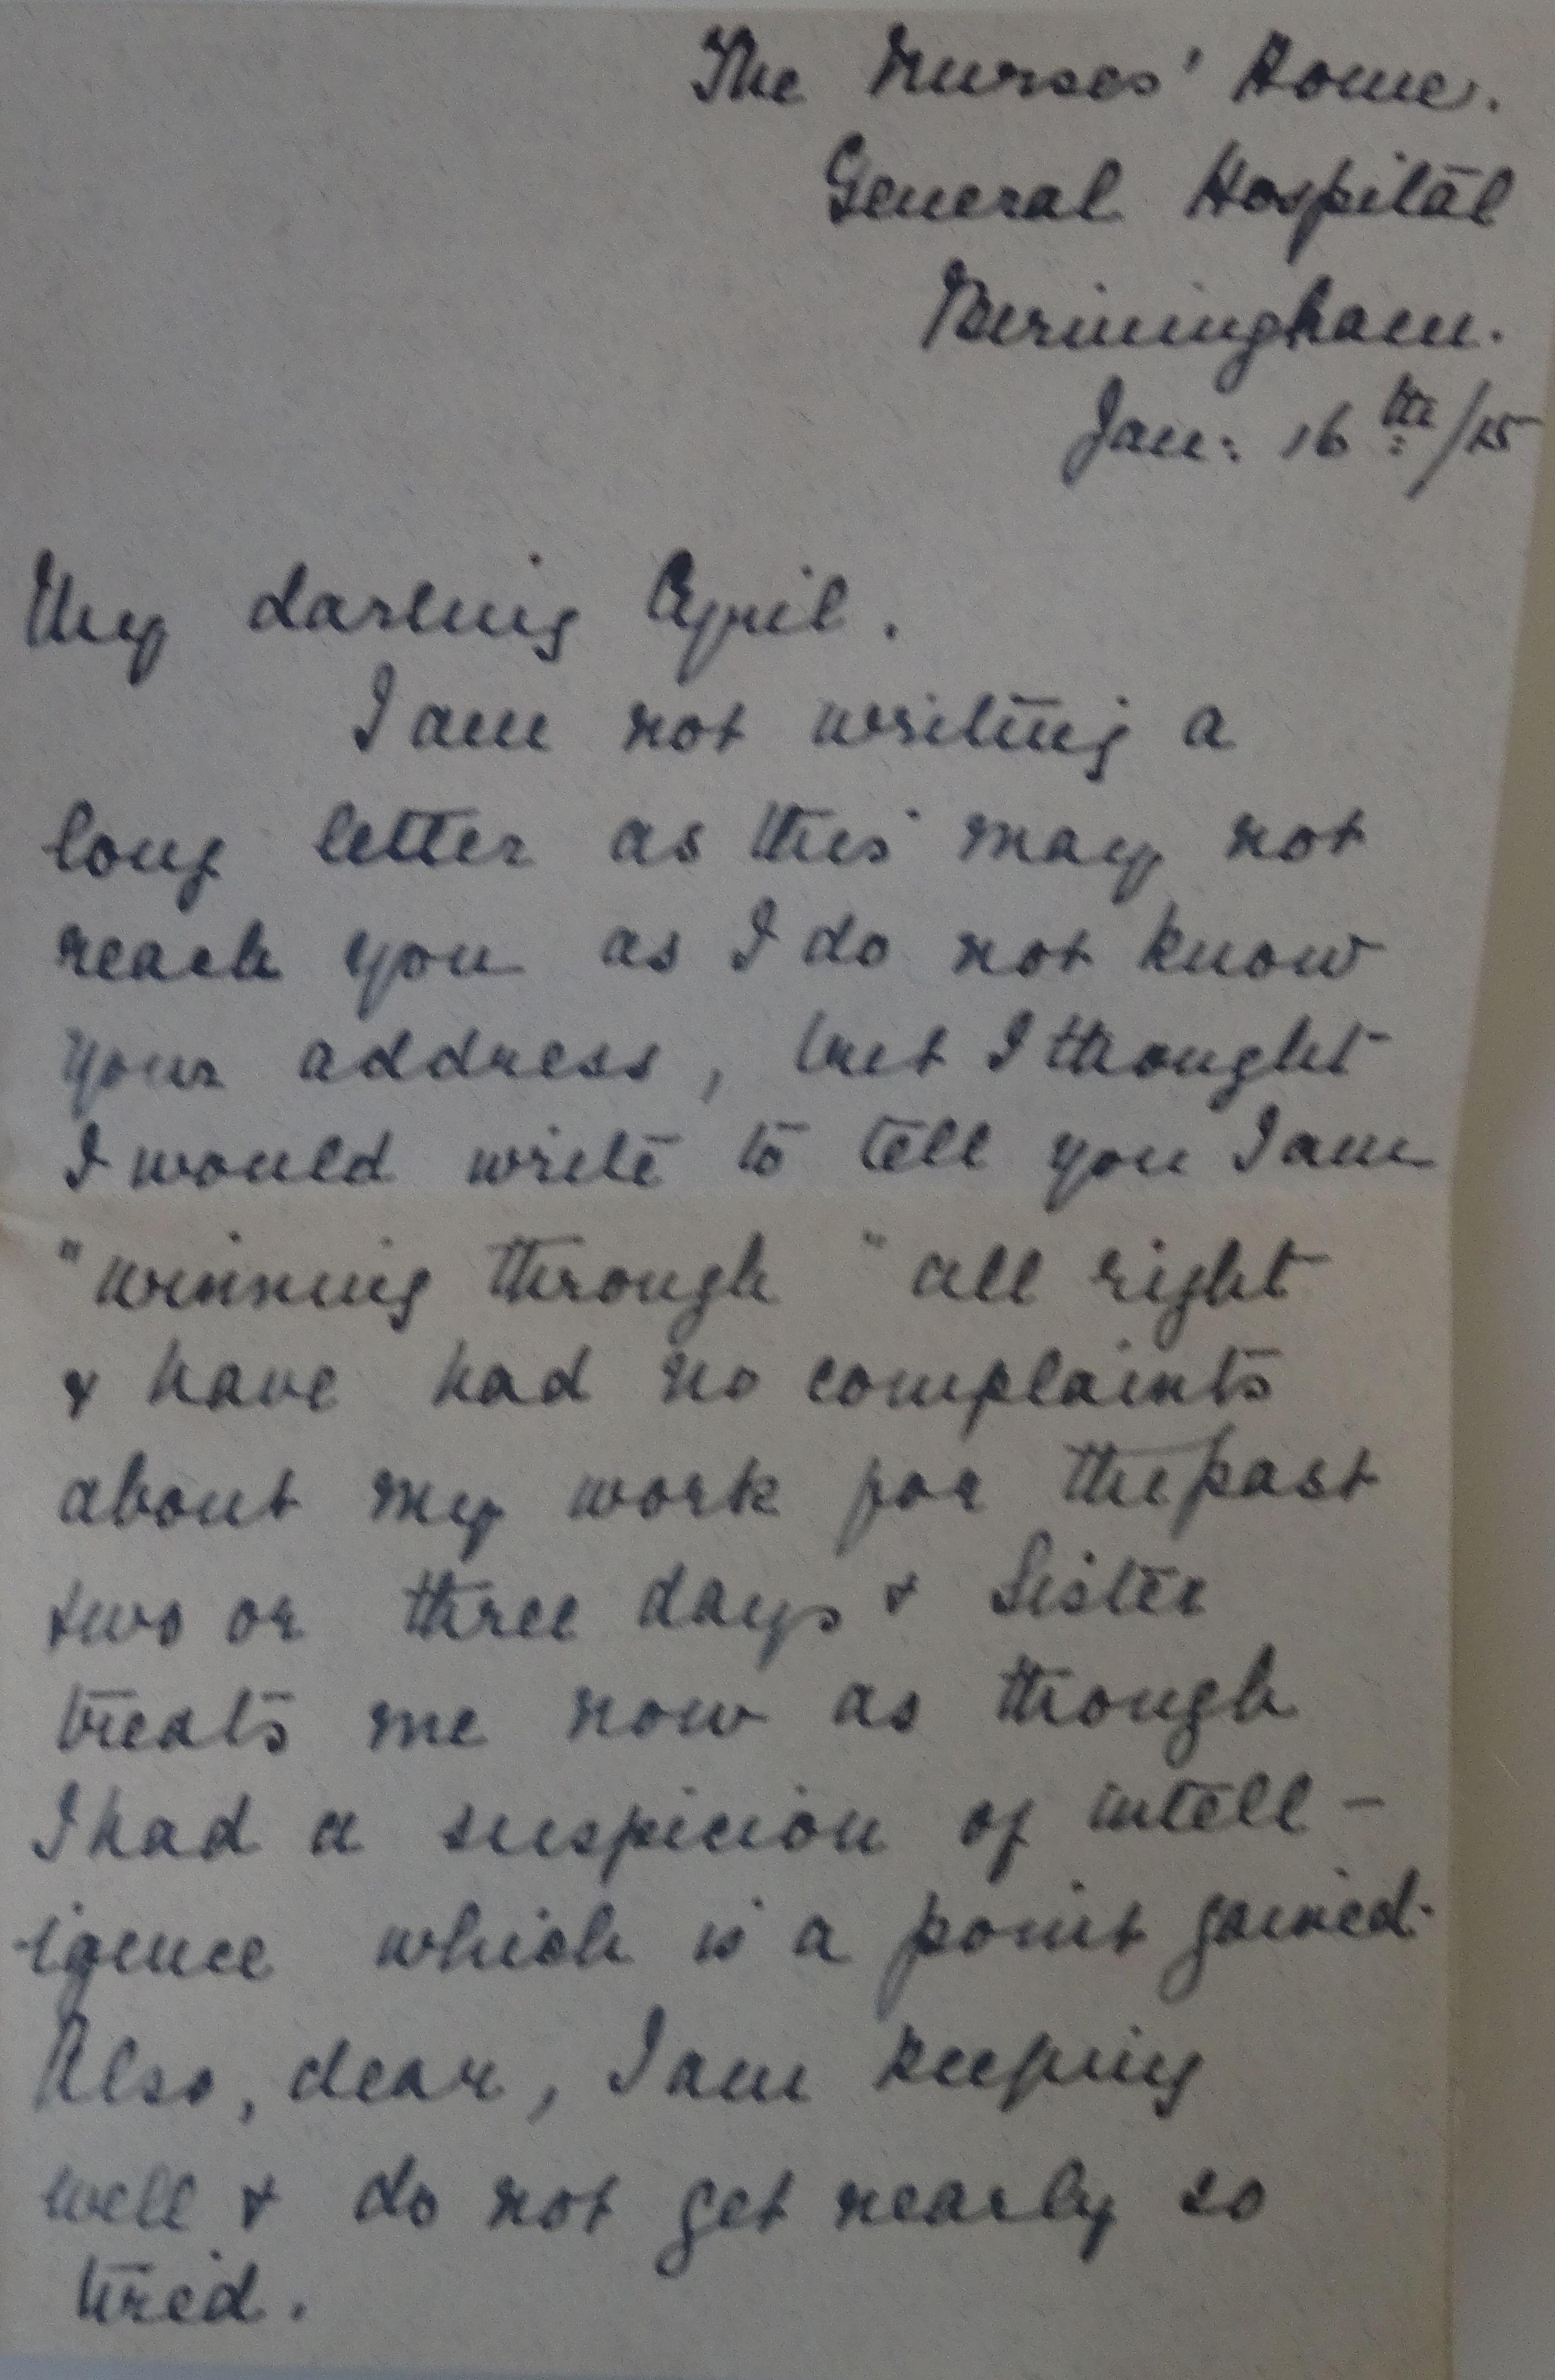 The Nurses' Home.
General Hospital
Birmingham.
Jan: 16th/15
My darling April.
I am not writing a
long letter as this may not
reach you as I do not know
your address, but I thought
I would write to tell you I am
"winning through" all right
& have had no complaints
about my work for the past
two or three days & Sister
treats me now as though
I had a suspicion of intell-
igence which is a point gained.
Also, dear, I am keeping
well & do not get nearly so
tired.